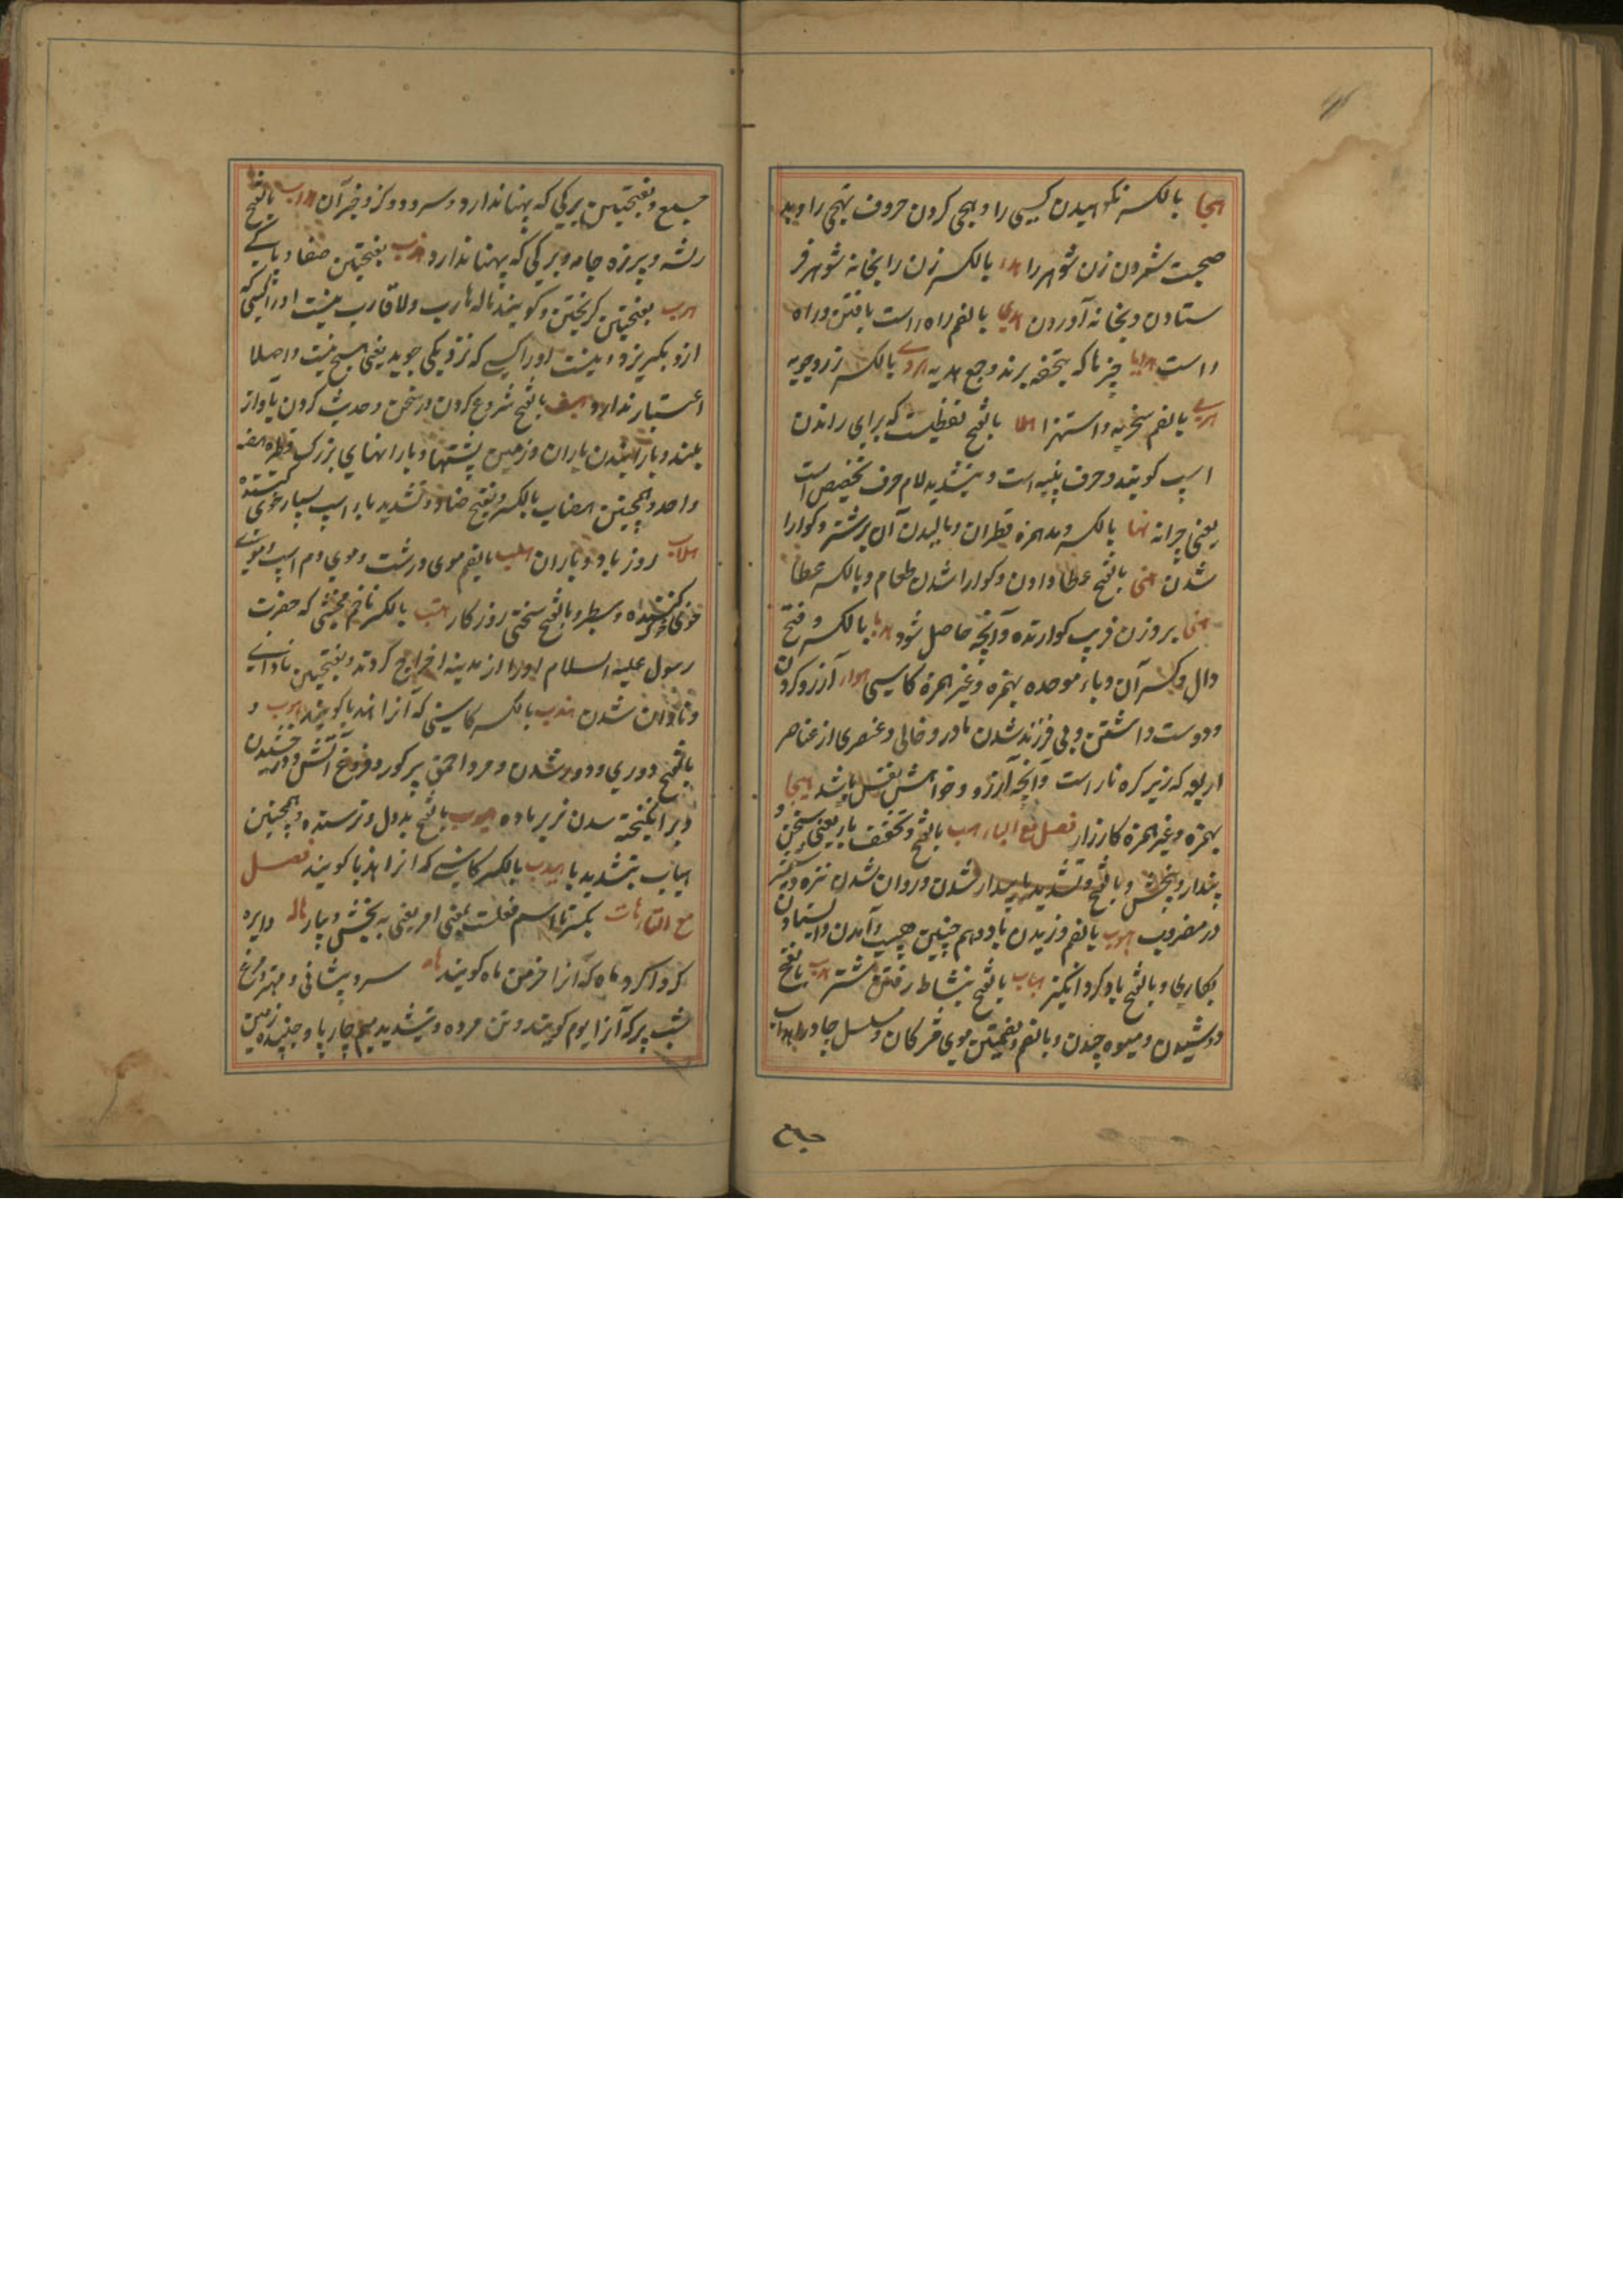 هجا بالکسر نکوهیدن کسی را و هجی کردن حروف تهجی را و بد
صحبت شمردن زن شوهر را هدا بالکسر زن را بخانه شوهر فر
ستادن و بخانه آوردن هدی بالضم راه راست یافتن و راه
راست هدایا چیزها که بتحفه برند و جمع هدیه بالکسر زرد چوبه
بالضم سخریه و استهزا هلا بالفتح لفظیست که برای راندن
اسپ کویند و حرف تنبیه است و بتشدید لام حرف تخصیص است
یعنی چرا نه هنا بالکسر و مد همزه قطران و مالیدن آن بر شتر و کوارا
شدن هنی بالفتح عطا دادن و کوارا شدن طعام و بالکسر عطا
هنی بروزن قریب کوارنده و آنچه حاصل شود بالکسر و فتح
دال و کسر آن و باء موحده بهمزه و غیر همزه کاسنی هوا آرزو کردن
و دوست داشتن و بی فرزند شدن مادر و خالی و عنصری از عناصر
اربعه که زیر کره نار است و آنچه آرزو و خواهش نفس باشد هیجا
بهمزه و غیر همزه کارزار فصل مع الباء هب بالفتح و تخفیف با یعنی
پندار و ببخش و بالفتح و تشدید با بیدار شدن و روان شدن
در مضروب هبوب بالضم وزیدن باد و هم چنین هبیب و آمدن و ایستادن
بکاری و بالفتح باد کرد انکیز هباب بالفتح بنشاط رفتن شتر هدب بالفتح
دوشیدن و میوه چیدن و بالضم و بضمتین موی مژکان و
جمع و بفتحتین برکی که پهنا ندارد و سرو و کز و جز آن هداب بالفتح
ریشه و پرزه جامه و برکی که پهنا ندارد هذب بفتحتین صفا و پاکی
هرب بفتحتین کریختن و کویند ماله هارب ولا قارب نیست او را کسی که
ازو بکریزد و نیست او را کسی که نزدیکی جوید یعنی هیچ نیست و اصلا
اعتبار ندارد هضب بالفتح شروع کردن در سخن و حدیث کردن بآواز
بلند و بارانیدن باران و زمین پشتها و بارانهای بزرک قطره هضبه
واحد و همچنین هضاب بالکسر و بفتح ضاد و تشدید با اسپ بسیار عرق کننده
هلاب روز باد و باران هلب بالضم موی درشت و موی دم اسپ
و بالفتح سختی روزکار هیت بالکسر نام مخنثی که حضرت
رسول علیه السلام او را از مدینه اخراج کردند و بفتحتین نادانی
و نادان شدن هندب بالکسر کاسنی که آنرا هندبا کویند هوب و
بالفتح دوری و دور شدن و مرد احمق پر کو و فروغ آتش و درخشیدن
و برانکیخته شدن نر بر ماده هیوب بالفتح بددل و ترسنده و همچنین
هیاب بتشدید با هیدب بالکسر کاسنی که آنرا هندبا کویند فصل
مع التاء هات بکسر تا اسم فعلست بمعنی امر یعنی ببخش و بیار هاله دایره
کرد اکرد ماه که آنرا خرمن ماه کویند هامه سر و پیشانی و مهتر و مرغ
شب پر که آنرا بوم کویند و تن مرده و بتشدید میم چارپا و جنبنده زمین